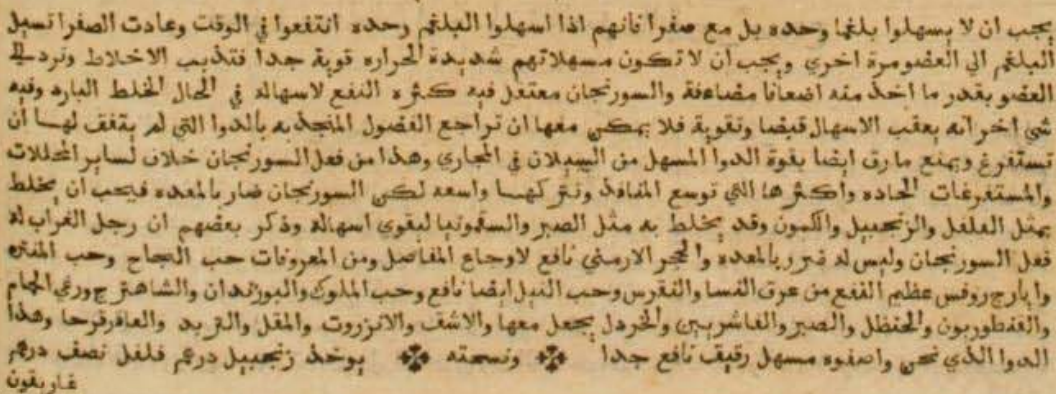 يجب ان لا يسهلوا بلغما وحده بل مع صفرا فانهم اذا اسهلوا البلغم وحده انتفعوا في الوقت وعادت الصفرا تسيل
البلغم الي العضو مرة اخري ويجب ان لا تكون مسهلاتهم شديدة الحراره قوية جدا فتذيب الاخلاط وترد الي
العضو بقدر ما اخذ منه اضعافا مضاعفة والسورنجان معتمل فيه كثره النفع لاسهاله في الحال الخلط البارد وفيه
شي اخر انه يعقب الاسهال قبضا وتقوية فلا يمكن معها ان تراجع الفضول المنجذبه بالدوا التي لم يتفف لهـا أن
تستفرغ ويمنع ما رق ايضا بقوة الدوا المسهل من السيلان في المجاري وهذا من فعل السورنجان خلاف لساير المحللات
والمستفرغات الحاده واكثرها التي توسع المنافذ وتتركهـا واسعه لكن السورنجان ضار بالمعده فيجب ان يخلط
بمثل الفلفل والزنجبيل والكمون وقد يخلط به مثل الصبر والسقمونيا ليقوي اسهاله وذكر بعضهم ان رجل الغراب له
فعل السورنجان وليس له ضرر بالمعده والحجر الارمني نافع لاوجاع المفاصل ومن المعروفات حب النجاح وحب المنتن
وايارج روفس عظيم النفع من عرق النسا والنقرس وحب النيل ايضا نافع وحب الملوك والبوزيدان والشاهترج ورعي الحمام
والقنطوريون والحنظل والصبر والفاشريين والخردل يجعل معها والاشف والانزروت والمقل والتربد والعاقرقرحا وهذا
الدوا الذي نحن واصفوه مسهل رقيق نافع جدا ونسخته يوخذ زنجبيل درهم فلفل نصف درهم
غاريقون